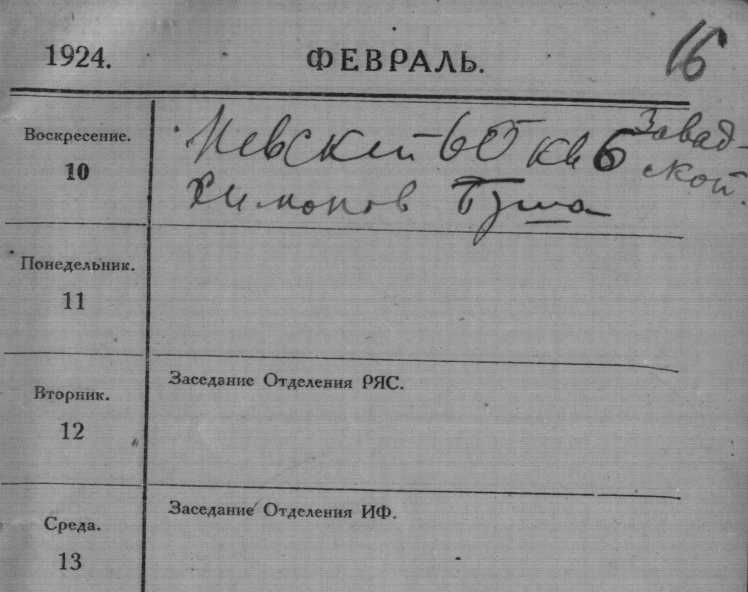 1924. ФЕВРАЛЬ. 16
Воскресение.
10
Невский 65 кв 6 Завад-
ской.
Понедельник.
11
Вторник.
12
Заседание Отделения РЯС.
Среда.
13
Заседание Отделения ИФ.